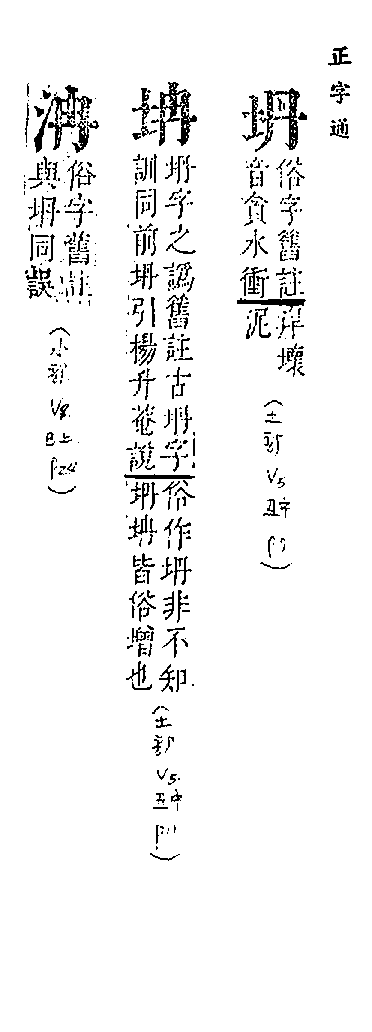 正字通
坍
俗字舊註岸壞
音貪水衝泥
(土部 V5 丑中
坍字之譌舊註古坍字俗作坍非不知
訓同前坍引楊升菴說坍坤皆俗增也
(土部 V5 丑中
俗字舊註
與坍同誤
(水部 V8 巳上 p24)